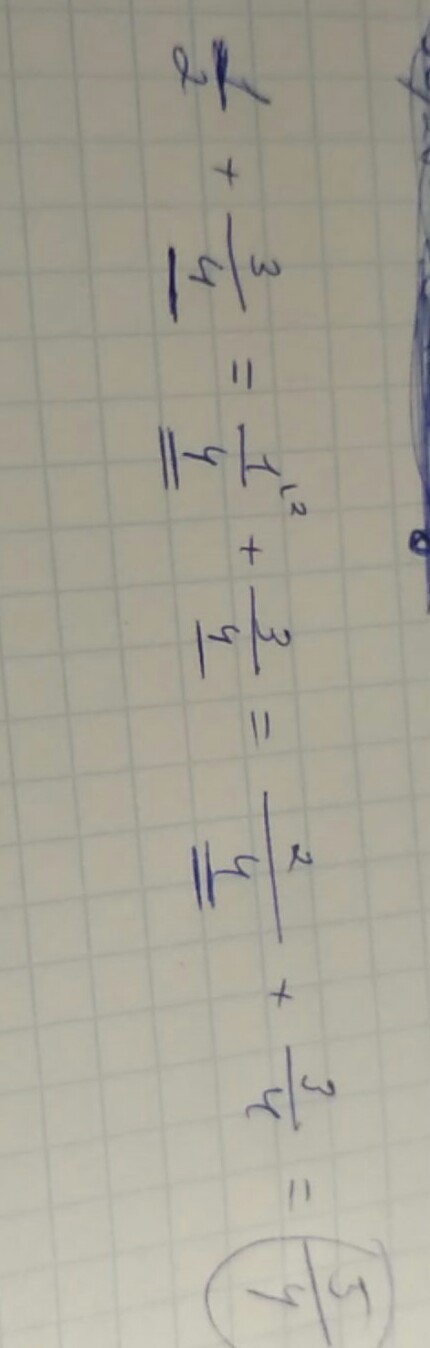 1/2 + 3/4 = 1\2/4 + 3/4 = 2/4 + 3/4 = 5/4